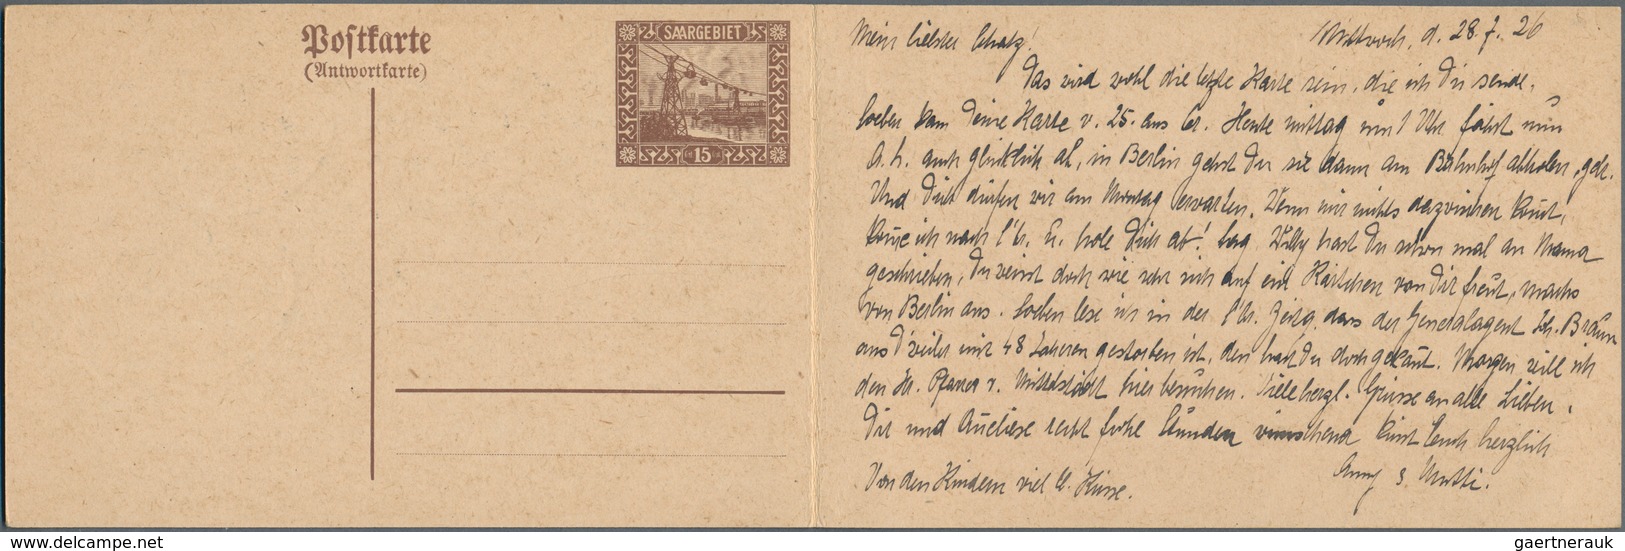 Postkarte
(Antwortkarte)
SAARGEBIET
15
Mein liebster Schatz!
Mittwoch, d. 28.7.26
Das wird wohl die letzte Karte sein, die ich Dir sende.
Soeben kam Deine Karte v. 25. aus Gr. Heute mittag um 1 Uhr fährt nun
A. h. auch glücklich ab, in Berlin gehst Du sie dann am Bahnhof abholen, gelt.
Und Dich dürfen wir am Montag erwarten. Wenn mir nichts dazwischen kommt,
komme ich nach u. hole Dich ab! Sag, Willy hast Du schon mal an Mama
geschrieben, Du weisst doch wie sehr sich auf ein Kärtchen von Dir freut, machs
von Berlin aus. Soeben lese ich in der Zeitg. dass der Generalagent Joh. Braun
aus mit 48 Jahren gestorben ist, den hast Du doch gekannt. Morgen will ich
den Hr. Pfarrer v. Mittelstadt hier besuchen. Viele herzl. Grüsse an alle Lieben.
Dir und Anneliese recht frohe Stunden wünschend küsst Euch herzlich
Anny s. Mutti.
Von den Kindern viel l. Küsse.
www.delcampe.net
gaertnerauk